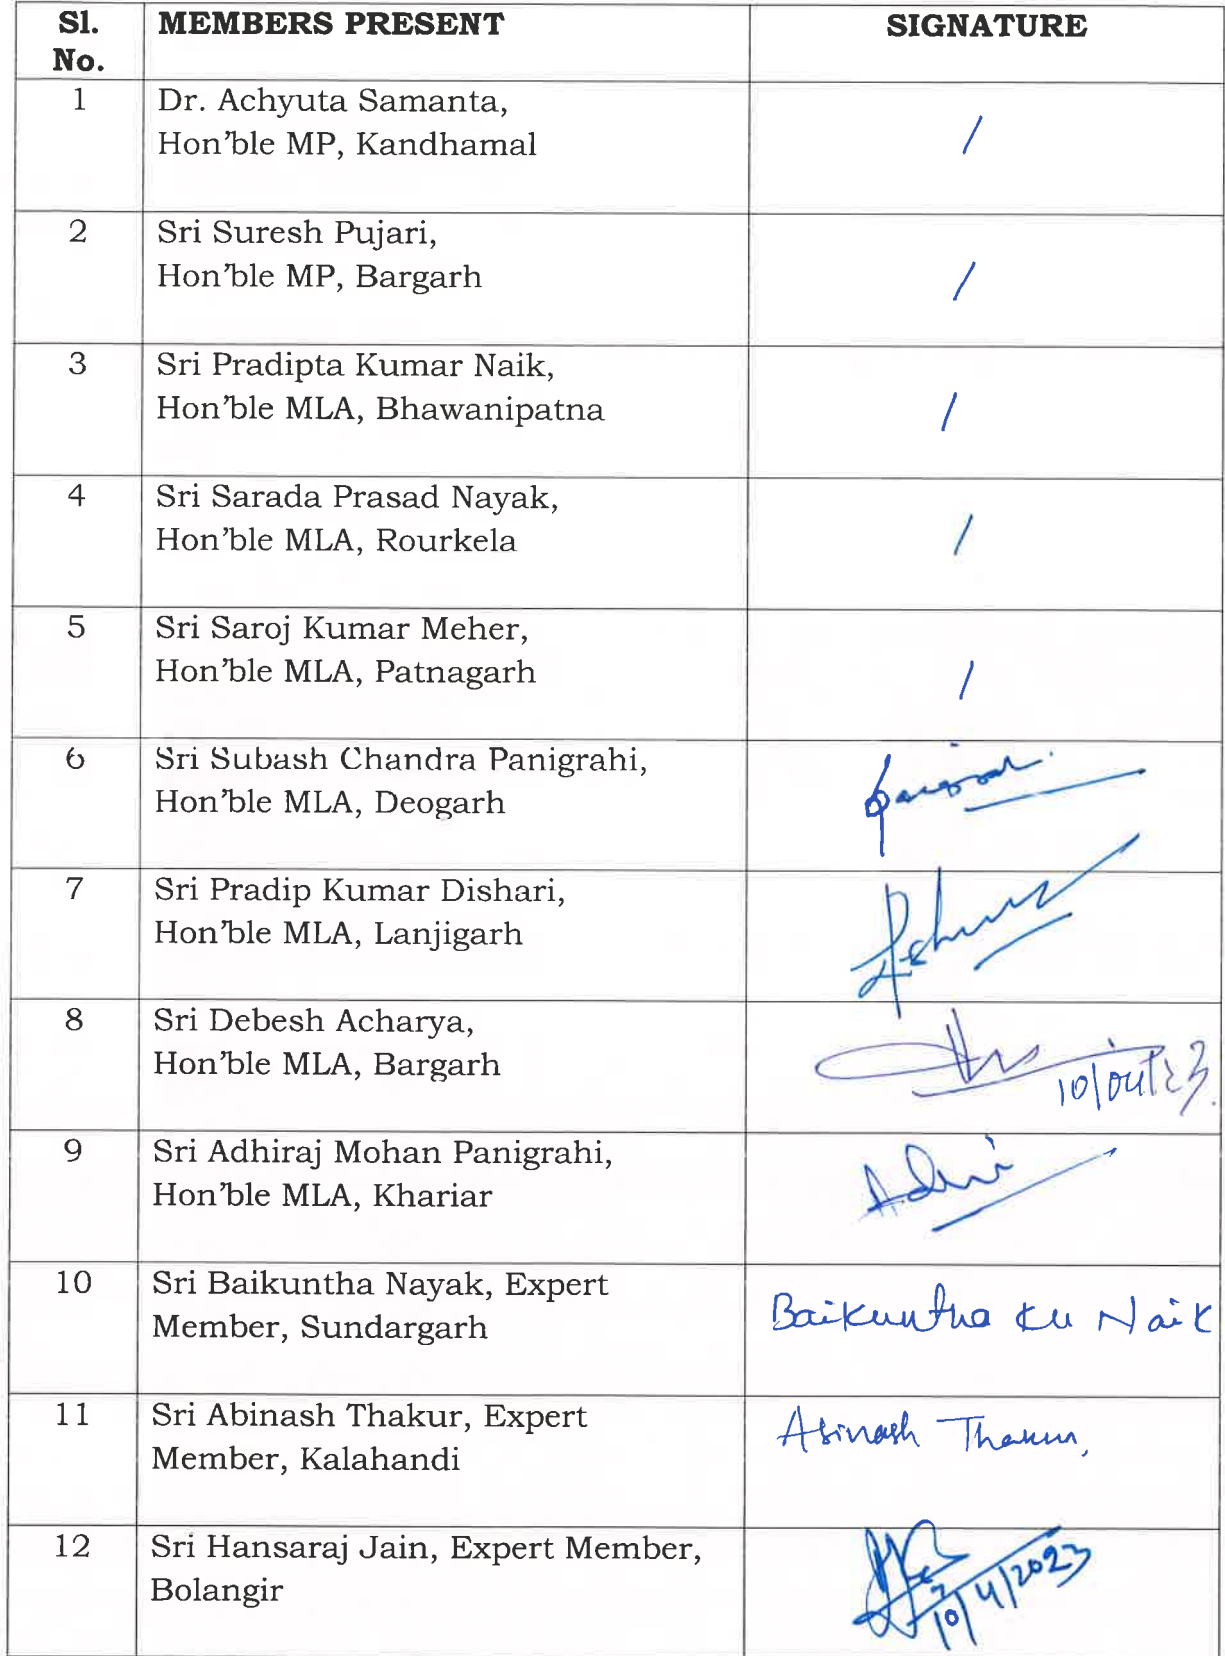 Sl. No. MEMBERS PRESENT SIGNATURE
1 Dr. Achyuta Samanta,
Hon'ble MP, Kandhamal
/
2 Sri Suresh Pujari,
Hon'ble MP, Bargarh
/
3 Sri Pradipta Kumar Naik,
Hon'ble MLA, Bhawanipatna
/
4 Sri Sarada Prasad Nayak,
Hon'ble MLA, Rourkela
/
5 Sri Saroj Kumar Meher,
Hon'ble MLA, Patnagarh
/
6 Sri Subash Chandra Panigrahi,
Hon'ble MLA, Deogarh
7 Sri Pradip Kumar Dishari,
Hon'ble MLA, Lanjigarh
8 Sri Debesh Acharya,
Hon'ble MLA, Bargarh
10/04/23.
9 Sri Adhiraj Mohan Panigrahi,
Hon'ble MLA, Khariar
10 Sri Baikuntha Nayak, Expert
Member, Sundargarh
Baikuntha Ku Naik
11 Sri Abinash Thakur, Expert
Member, Kalahandi
Abinash Thakur,
12 Sri Hansaraj Jain, Expert Member,
Bolangir
10/4/2023